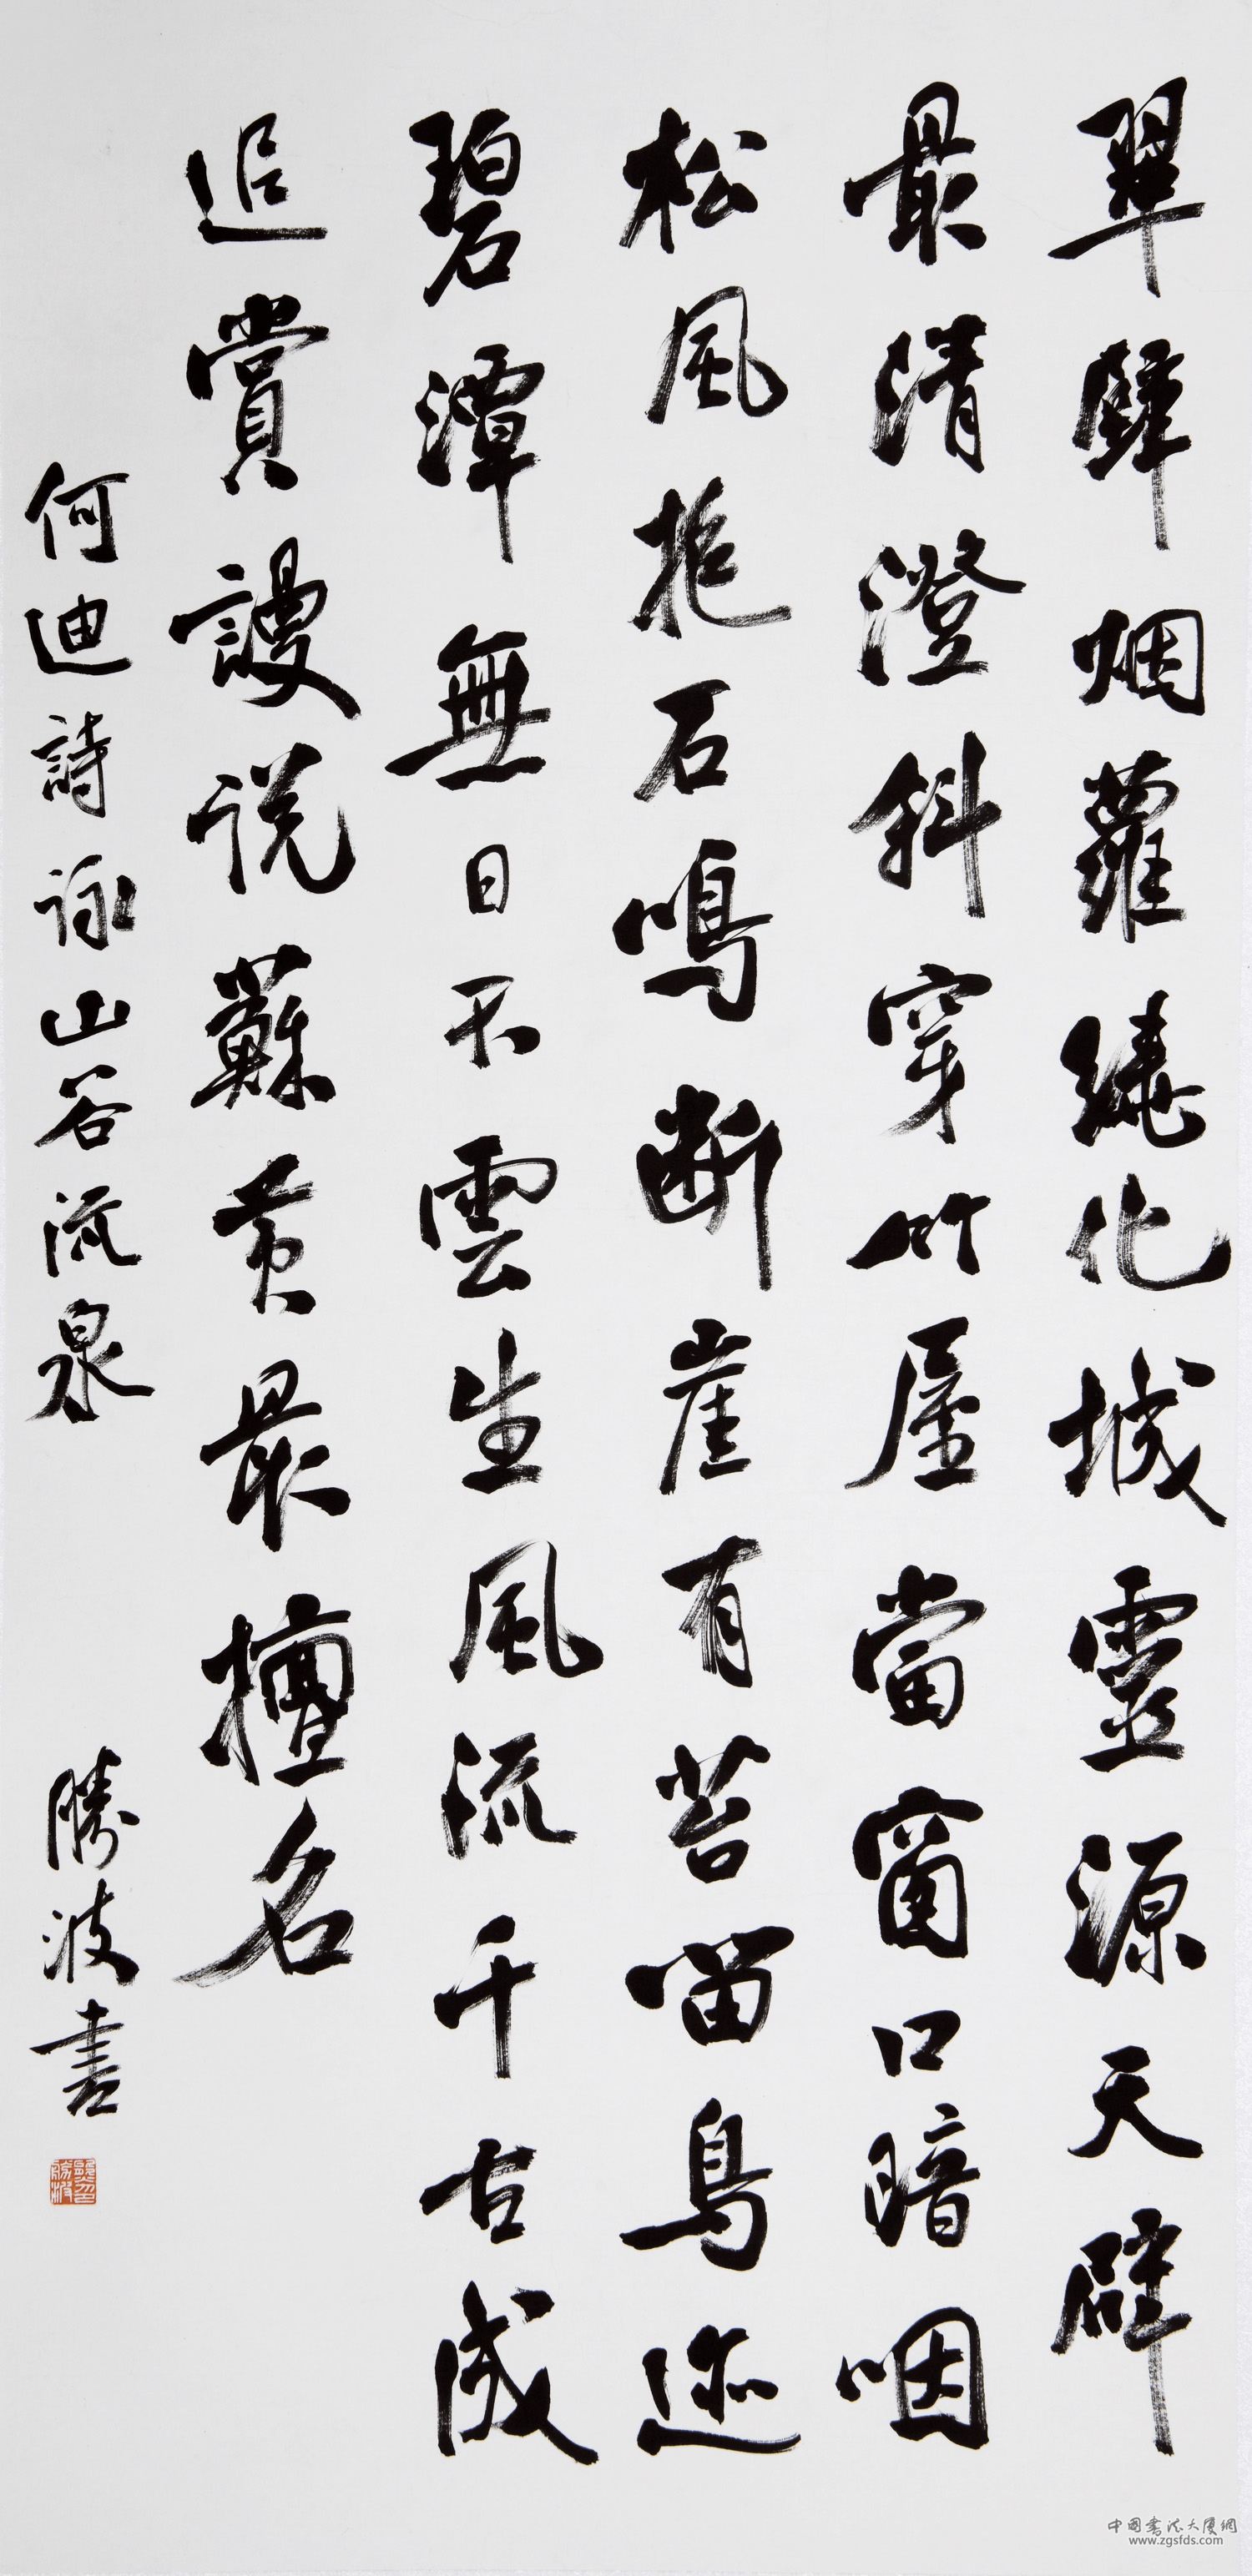 翠壁烟蘿繞化城靈源天闢
最清澄斜穿竹屋當窗口暗咽
松風抱石鳴斷崖有苔留鳥迹
碧潭無日不雲生風流千古成
追賞謾说蘇黄最擅名
何迪詩詠山谷流泉
勝波書
中国书法大厦網
www.zgsfds.com